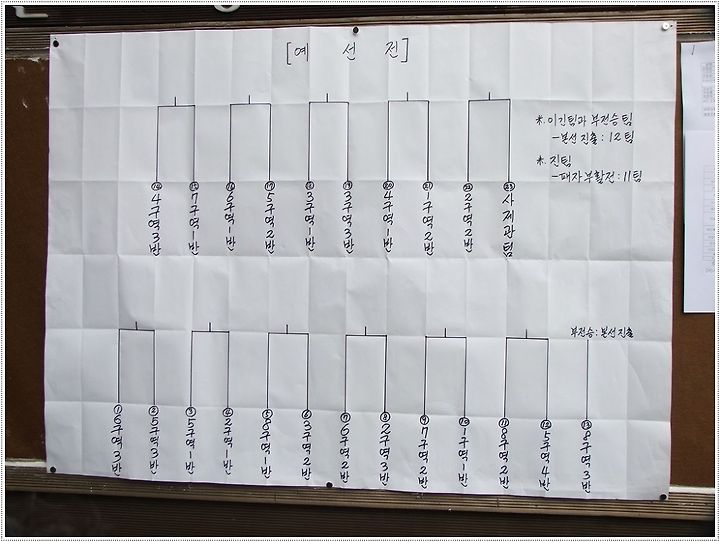 [예 선 전]
*. 이긴팀과 부전승팀
-본선진출: 12팀
*. 진팀
-패자부활전: 11팀
⑭ 4구역3반
⑮ 7구역1반
⑯ 6구역1반
⑰ 5구역2반
⑱ 3구역1반
⑲ 3구역3반
⑳ 4구역1반
㉑ 1구역2반
㉒ 2구역2반
㉓ 사제관팀
부전승: 본선진출
① 6구역3반
② 5구역3반
③ 5구역1반
④ 2구역1반
⑤ 8구역1반
⑥ 3구역2반
⑦ 6구역2반
⑧ 2구역3반
⑨ 7구역2반
⑩ 1구역1반
⑪ 8구역2반
⑫ 5구역4반
⑬ 8구역3반